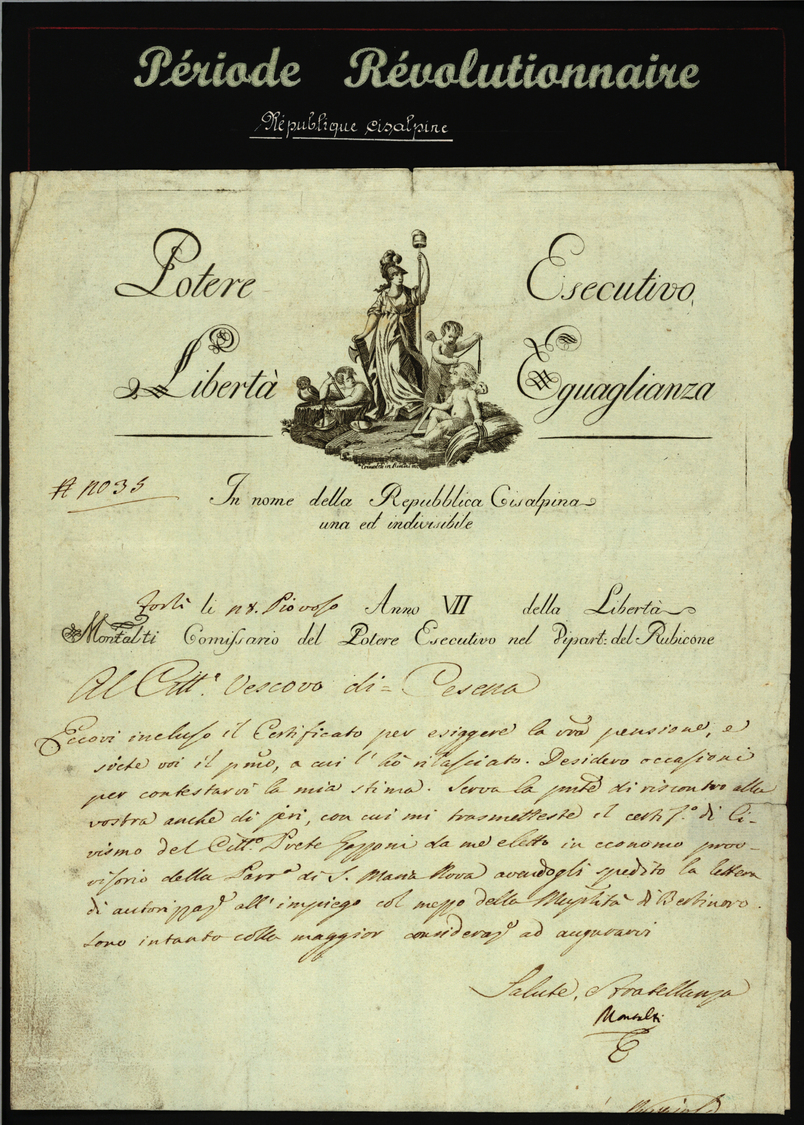 Période Révolutionnaire
République cisalpine
Potere Esecutivo
Libertà Eguaglianza
N 1035
In nome della Repubblica Cisalpina
una ed indivisibile
Forlì li 18. Piovoso Anno VII della Libertà
Montalti Comissario del Potere Esecutivo nel Dipart: del Rubicone
Al Citt.º Vescovo di= Cesena
Eccovi incluso il Certificato per esiggere la vrã pensione, e
siete voi il pmõ, a cui l'hò rilasciato. Desidero occasioni
per contestarvi la mia stima. Serva la pnte di riscontro alla
vostra anche di jeri, con cui mi trasmetteste il certif.º di Ci-
vismo del Citt.º Prete da me eletto in economo prov-
visorio della Parr.ª di S. Maria Nova avendogli spedito la lettera
di autorizzaz.e all'impiego col mezzo della di Bertinoro.
Sono intanto colla maggior consideraz.e ad augurarvi
Salute, Fratellanza
Montalti